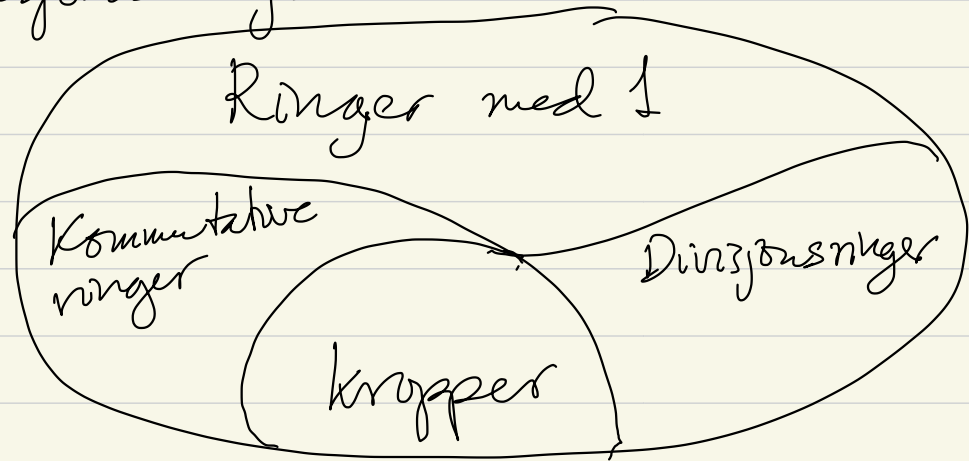 Ringer med 1
Kommutative
ringer
Divisjonsringer
kropper